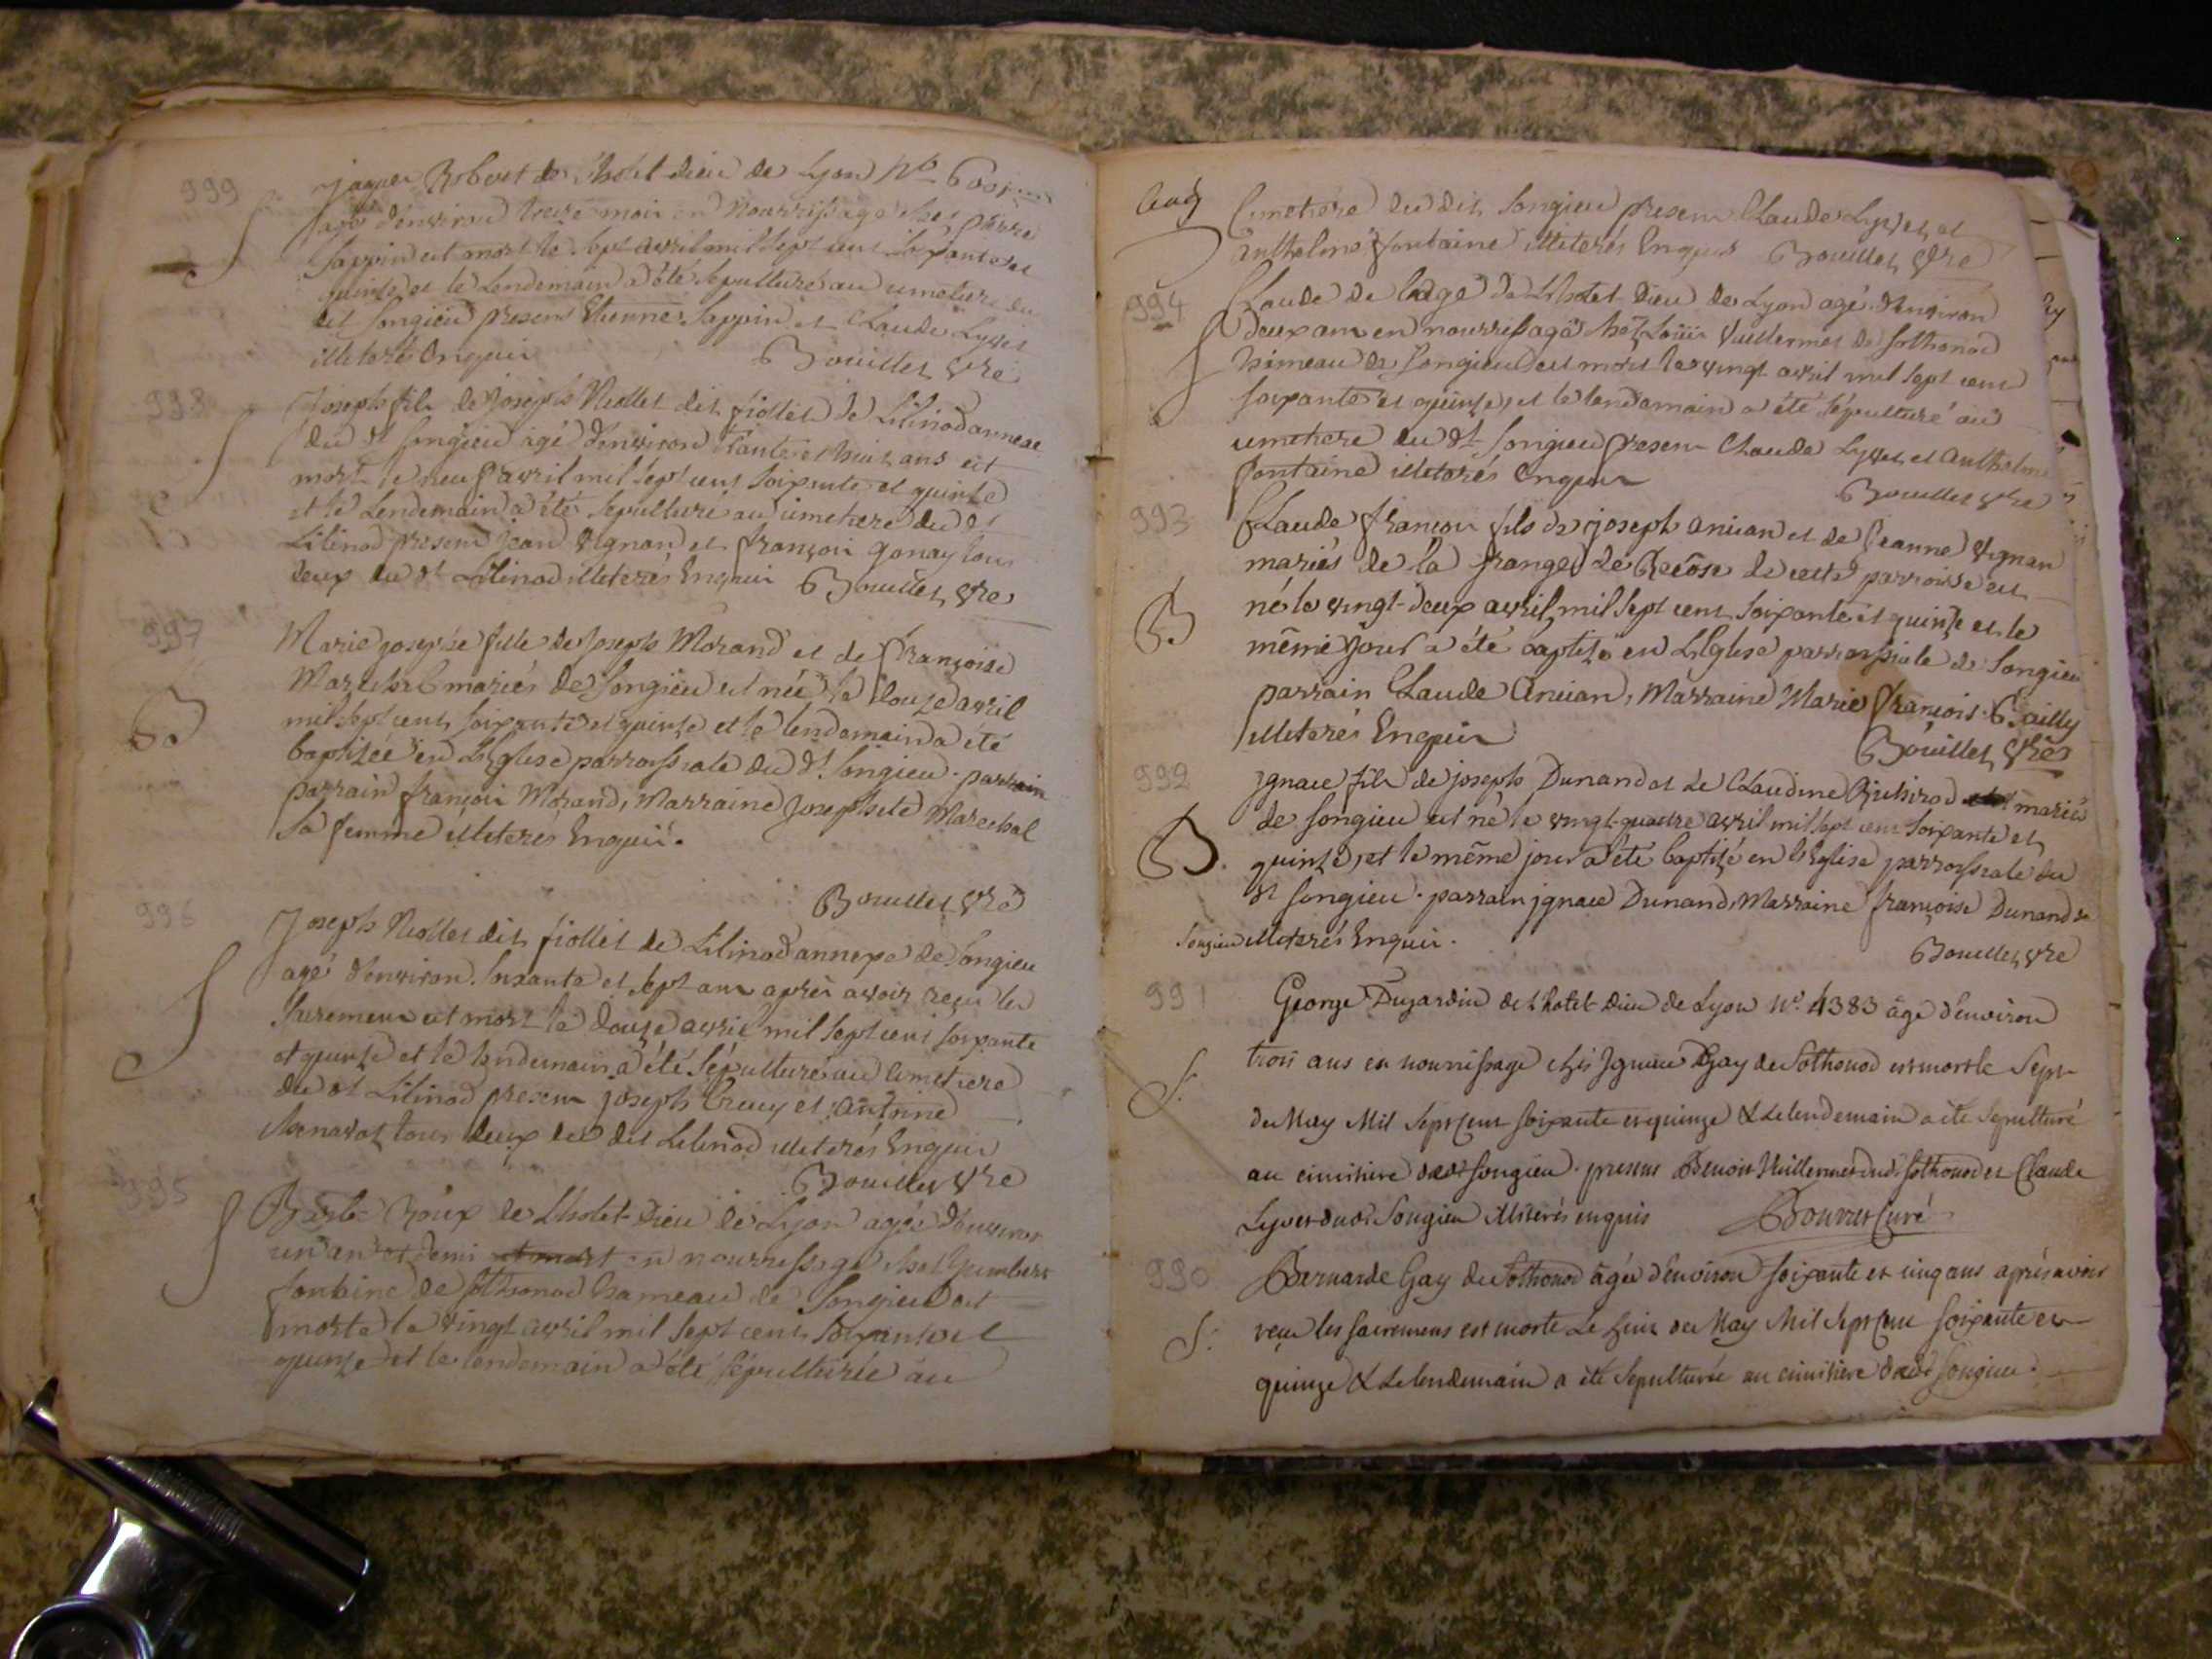 999
Jaques Robert de l'hotel dieu de Lyon No
agé d'environ treze mois en nourrissage ches pierre
Sappin est mort le sept avril mil sept cent soixante et
quinze et le lendemain a été sepulturé au cimetiere du
dit Songieu presens Etienne Sappin et Claude Lyvet
illiterés enquis Bouillet vre
998
S
Joseph fils de Joseph Niollet dit fiollet de Lilinod annexe
du dt Songieu agé d'environ trante et huit ans est
mort le neuf avril mil sept cent soixante et quinze
et le lendemain a été sepulturé au cimetiere du dt
Lilinod presens jean Vignan et françois gonay tous
deux du dt Lilinod illiterés enquis Bouillet vre
997
B
Marie josephe fille de Joseph Morand et de françoise
Marechal mariés de Songieu est née le douze avril
mil sept cent soixante et quinze et le lendemain a été
baptisée en L'Eglise parroissiale du dt Songieu. parrain
parrain françois Morand, Marraine Josephete Marechal
sa femme illiterés enquis.
Bouillet vre
996
S
Joseph Niollet dit fiollet de Lilinod annexe de Songieu
agé d'environ soixante et sept ans après avoir reçu les
sacremens est mort le douze avril mil sept cent soixante
et quinze et le lendemain a été sépulturé au cimetiere
du dt Lilinod presens joseph et Antoine
tous deux du dit Lilinod illiterés enquis
Bouillet vre
995
S
Roux de Lhotel-Dieu de Lyon agée d'environ
un an et demi et mort en nourrissage chez humbert
fontaine de Sothonod hameau de Songieu est
morte le vingt avril mil sept cent soixante et
quinze et le lendemain a été sépulturée au
Cimetiere du dit Songieu presens Claude Lyvet et
Anthelme fontaine illiterés enquis Bouillet vre
994
S
Claude de lage de Lhotel-Dieu de Lyon agé d'environ
deux ans en nourrissage chez Louis Vuillermet de Sothonod
hameau de Songieu est mort le vingt avril mil sept cent
soixante et quinze, et le lendemain a été sépulturé au
cimetiere du dt Songieu presens Claude Lyvet et Anthelme
fontaine illiterés enquis
Bouillet vre
993
B
Claude françois fils de joseph Anican et de Jeanne Vignan
mariés de la grange de de cette parroisse est
né le vingt-deux avril mil sept cent soixante et quinze et le
même jour a été baptizé en L'Eglise parroissiale de Songieu
parrain Claude Anican, Marraine Marie françois Bailly
illiterés enquis
Bouillet vre
992
B.
Ignace fils de joseph Dunand et de Claudine mariés
de Songieu est né le vingt-quatre avril mil sept cent soixante et
quinze, et le même jour a été baptizé en L'Eglise parroissiale du
dt Songieu. parrain jgnace Dunand, Marraine françoise Dunand de
Songieu illiterés enquis.
Bouillet vre
991
S.
George Dujardin de l'hotel-Dieu de Lyon No. 4383 âgé d'environ
trois ans en nourrissage chés Ignace Gay de Sothonod est mort le Sept
de May Mil Sept Cent soixante et quinze & le lendemain a été sepulturé
au cimitiere du dt Songieu. presens Benoit Vuillermet du dt Sothonod et Claude
Lyvet du dt Songieu illiterés enquis Bouvret Curé
990
S.
Bernarde Gay de Sothonod âgée d'environ soixante et cinq ans aprés avoir
reçu les sacremens est morte le huit de May Mil Sept Cent soixante et
quinze & le lendemain a été sepulturée au cimitiere du dt Songieu.